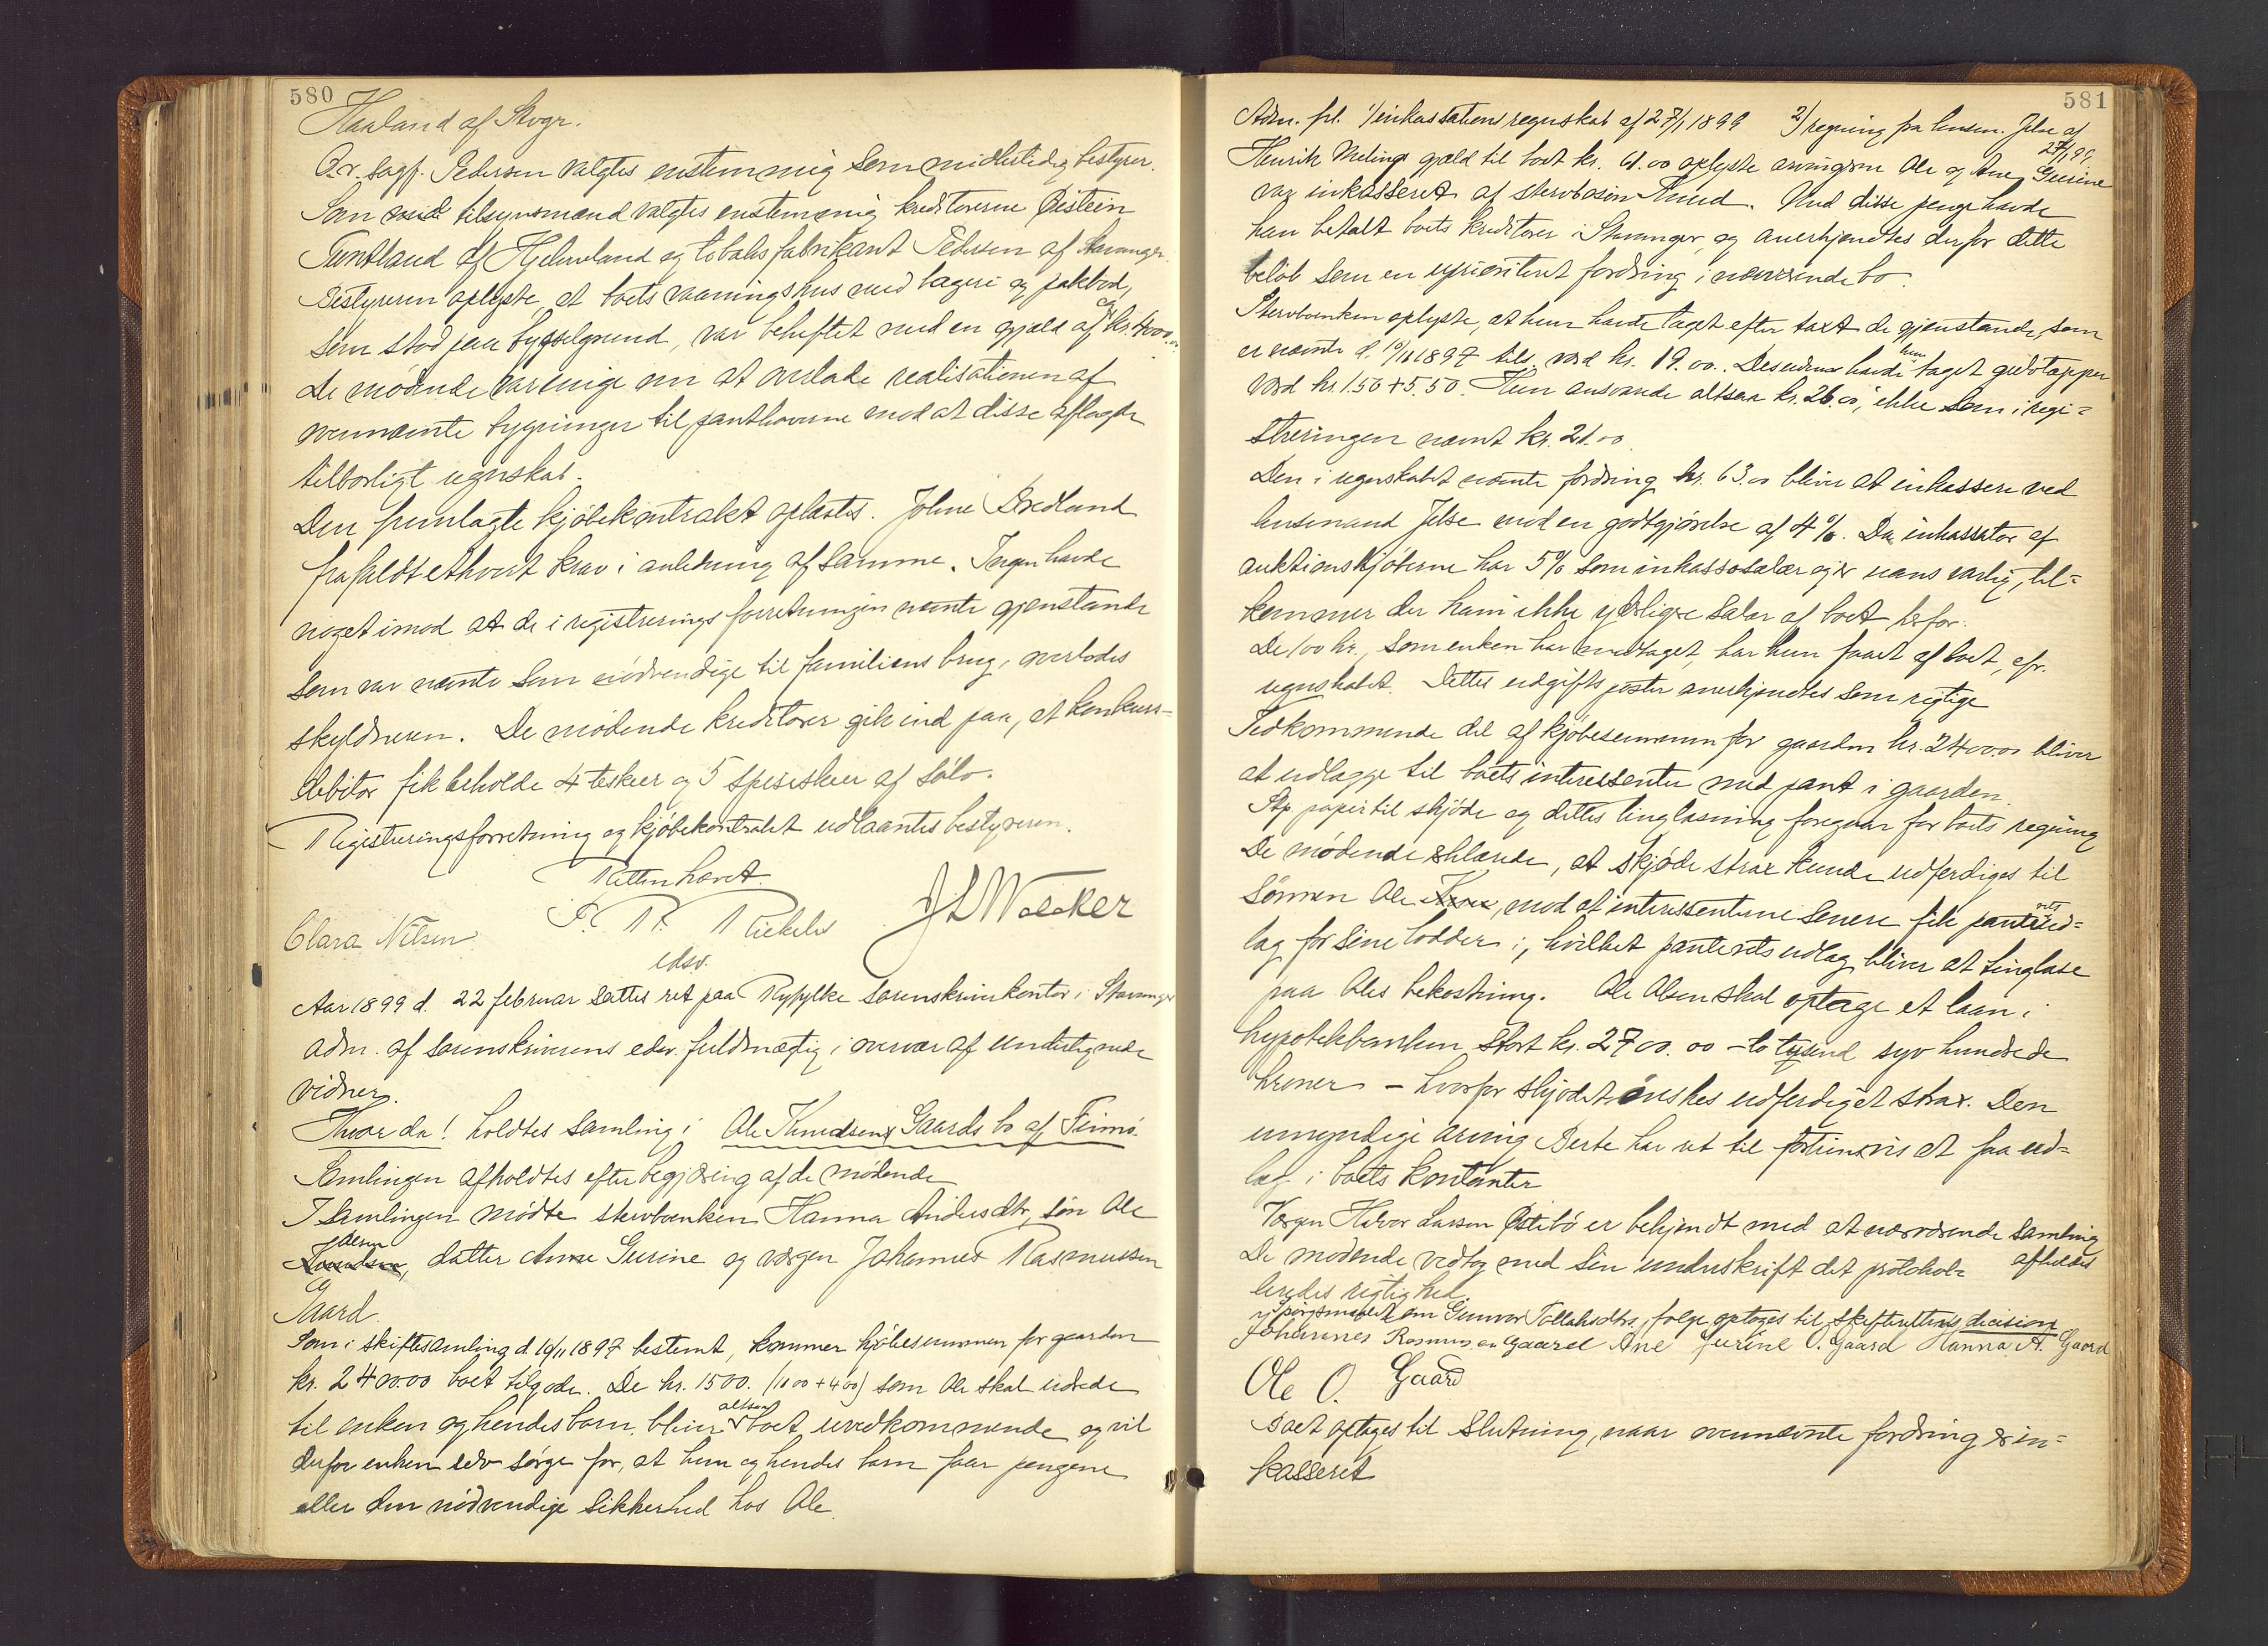 580
Haaland af Skogn.
O.r. sagf. Pedersen valgtes enstemmig som midlertidig bestyrer.
Som tilsynsmænd valgtes enstemmig kreditorerne Østein
Tuntland af Hjelmeland og tobaksfabrikant Pedersen af Stavanger.
Bestyreren oplyste, at boets vaaningshus med bageri og pakbod,
som stod paa bygselgrund, var beheftet med en gjæld af ca. kr. 4000.00
De mødende var enige om at overlade realisationen af
ovennævnte bygninger til panthaverne mod at disse aflagde
tilbørligt regnskab.
Den fremlagte kjøbekontrakt oplæstes. Johne Bredland
frafaldt ethvert krav i anledning af samme. Ingen havde
noget imod at de i registreringsforretningen nævnte gjenstande
som var nævnte som nødvendige til familiens brug, overlodes
skyldneren. De mødende kreditorer gik ind paa, at konkurs-
debitor fik beholde 4 teskeer og 5 spiseskeer af sølv.
Registreringsforretning og kjøbekontrakt udlaantes bestyreren.
Retten hævet.
Clara Nilsen
edsv.
Aar 1899 d. 22 februar sattes ret paa Ryfylke sorenskriverkontor i Stavanger
adm. af sorenskriverens edsv. fuldmægtig i overvær af undertegnede
vidner.
Hvor da! holdtes samling i Ole Knudsen Gaards bo af Finnø.
Samlingen afholdtes efter begjæring af de mødende
I samlingen mødte stervboenken Hanna Andersdtr, søn Ole
Olsen
Knudsen, datter Anne Gurine og værgen Johannes Rasmussen
Gaard.
Som i skiftesamling d 10/11 1897 bestemt, kommer kjøbesummen for gaarden
kr. 2400.00 boet tilgode. De kr. 1500. (1100+400) som Ole skal udrede
til enken og hendes barn, bliver altsaa boet uvedkommende og vil
derfor enken selv sørge for, at hun og hendes barn faar pengene
eller den nødvendige sikkerhed hos Ole.
581
Adm. frl. 1/ inkassationsregnskab af 27/1 1899 2/ regning fra lensm. Jelse af
27/1 99.
Henrik Melings gjæld til boet kr. 61.00 oplyste arvingerne Ole og Ane Gurine
var inkasseret af stervbosøn Knud. Med disse penge havde
han betalt boets kreditorer i Stavanger, og anerkjendtes derfor dette
beløb som en uprioriteret fordring i nærværende bo.
Stervboenken oplyste, at hun havde taget efter taxt de gjenstande, som
er nævnte d. 10/11 1897 tils. værd kr. 19.00. Desuden havde hun taget gulvtæpper
værd kr. 1.50 + 5.50. Hun ansvarede altsaa kr. 26.00, ikke som i regi-
streringen nævnt kr. 21.00.
Den i regnskabet nævnte fordring kr. 63.00 bliver at inkassere ved
lensmand Jelse mod en godtgjørelse af 4 %. Da inkassator af
auktionskjøberne har 5% som inkassosalær og er ansvarlig, til-
kommer der ham ikke yderligere salær af boet herfor.
De 100 kr., som enken har modtaget, har hun faaet af boet, cfr.
regnskabet. Dettes udgiftsposter anerkjendtes som rigtige
Vedkommende del af kjøbesummen for gaarden kr. 2400.00 bliver
at udlægge til boets interessenter med pant i gaarden.
Stp. papir til skjøde og dettes tinglæsning foregaar for boets regning
De mødende erklærede, at skjøde strax kunde udferdiges til
sønnen Ole, mod at interessenterne senere fik pantretsud-
læg for sine lodder i, hvilket panteretsudlæg bliver at tinglæse
paa Oles bekostning. Ole Olsen skal optage et laan i
hypotekbanken stort kr. 2700.00 – to tusend syv hundrede
kroner – hvorfor skjødet ønskes udferdiget strax. Den
umyndige arving Berte har ret til fortrinsvis at faa ud-
læg i boets kontanter
Værgen Halvor Larsen Østebø er bekjendt med at nærværende samling
afholdes
De mødende vedtog med sin underskrift det protokol-
leredes rigtighed.
Spørgsmaalet om Gunvor Tollaksdtrs. følge optages til skifterettens decision
Johannes Rasmussen Gaard Ane Jurine O. Gaard Hanna A. Gaard
Ole O. Gaard
Boet optages til slutning, naar ovennævnte fordring er in-
kasseret